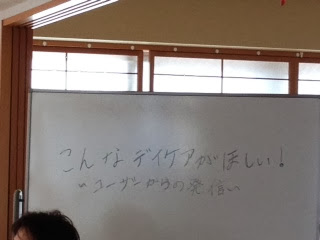 こんなデイケアがほしい!
〃ユーザーからの発信〃